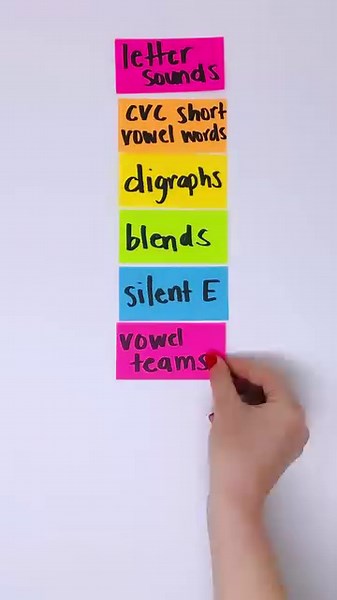 letter
sounds
CVC short
vowel words
digraphs
blends
silent E
vowel
teams